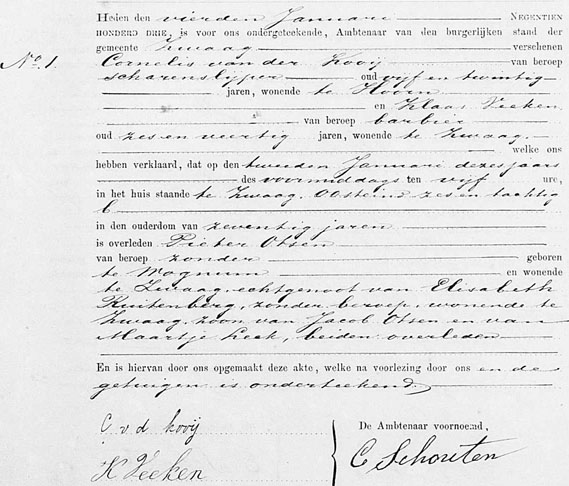 Heden den vierden Januari NEGENTIEN
No. 1. HONDERD DRIE, is voor ons ondergeteekende, Ambtenaar van den burgerlijken stand der
gemeente Zwaag verschenen
Cornelis van der Kooij van beroep
scharenslijper oud vijf en twintig
jaren, wonende te Hoorn
en Klaas Veeken
van beroep barbier
oud zes en veertig jaren, wonende te Zwaag.
welke ons
hebben verklaard, dat op den tweeden Januari dezes jaars
des voormiddags ten vijf ure,
in het huis staande te Zwaag, Oosteind zes en tachtig
C
in den ouderdom van zeventig jaren
is overleden Pieter Otsen
van beroep zonder geboren
te Wognum en wonende
te Zwaag, echtgenoot van Elisabeth
Kuitenberg, zonder beroep, wonende te
Zwaag, zoon van Jacob Otsen en van
Maartje Leek, beiden overleden
En is hiervan door ons opgemaakt deze akte, welke na voorlezing door ons en de
getuigen is onderteekend.
C v d kooij
De Ambtenaar voornoemd,
K Veeken
C Schouten